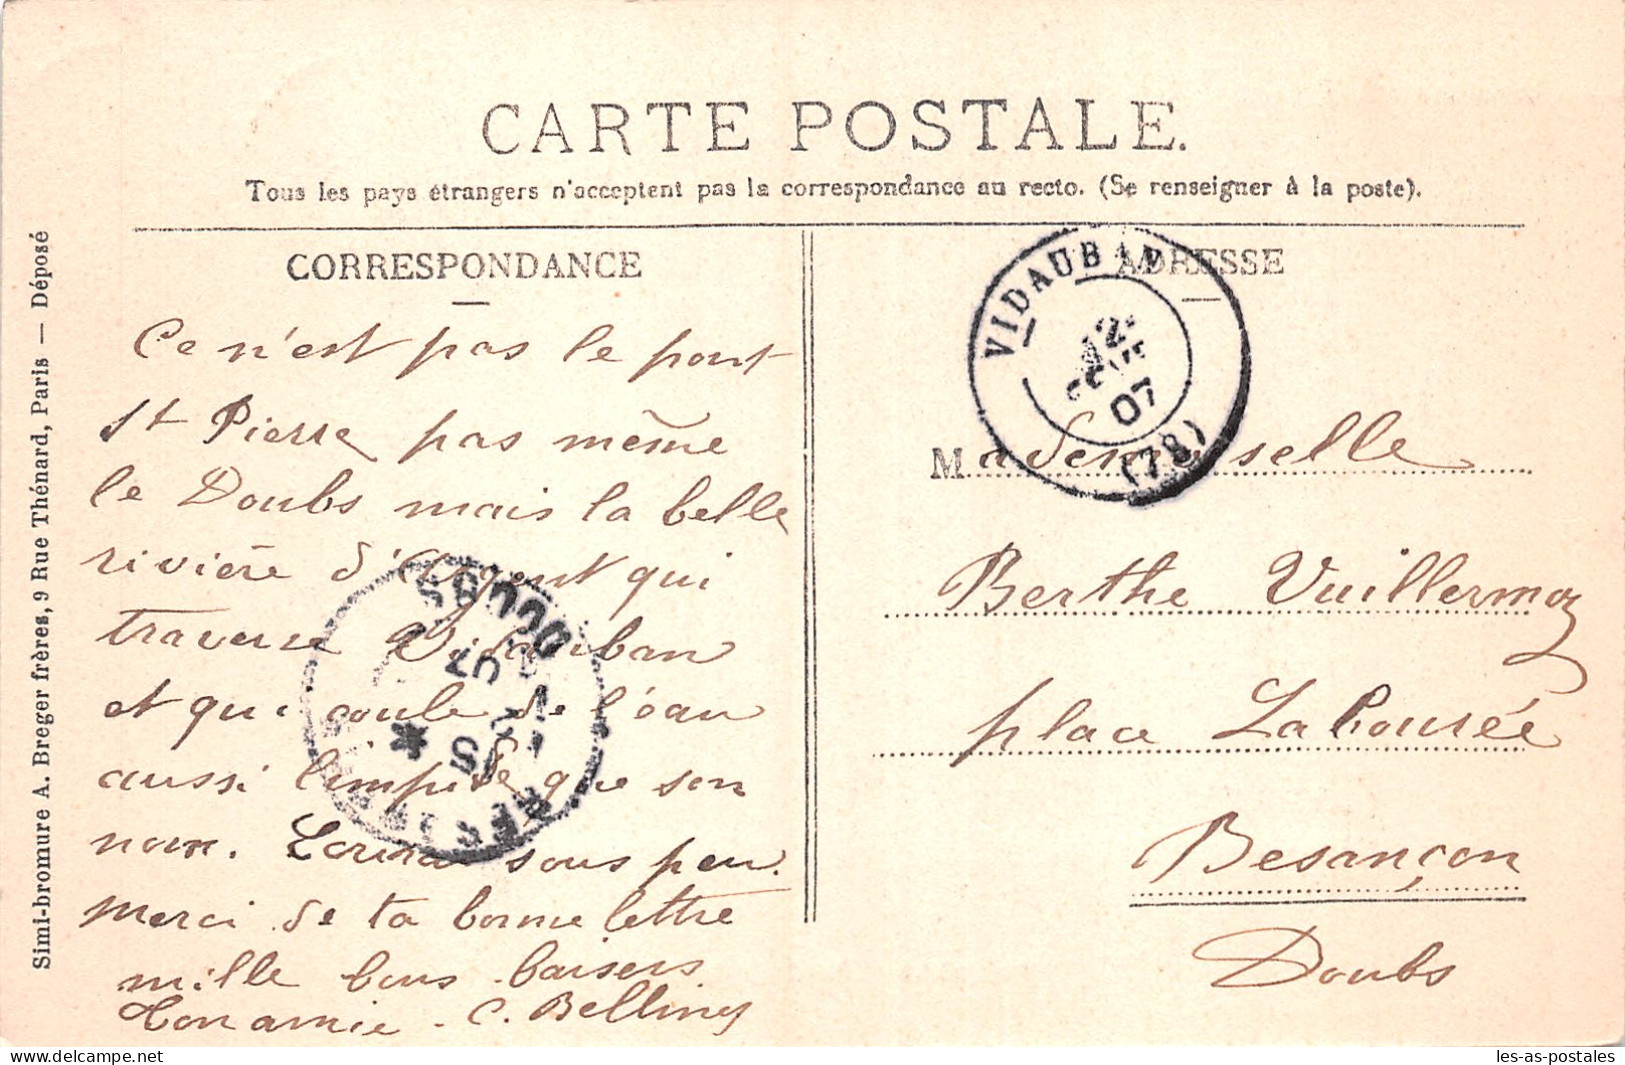 CARTE POSTALE.
Tous les pays étrangers n'acceptent pas la correspondance au recto. (Se renseigner à la poste).
Simi-bromure A. Breger frères, 9 Rue Thénard, Paris — Déposé
CORRESPONDANCE
Ce n'est pas le pont
St Pierre pas même
le Doubs mais la belle
rivière d'Argent qui
traverse Vidauban
et qui coule de l'eau
aussi limpide que son
nom. sous peu.
Merci de ta bonne lettre
mille bons baisers
Ton amie. C.
ADRESSE
VIDAUBAN
12
07
(78)
Mademoiselle
Berthe Vuillermoz
place Labourée
Besançon
Doubs
DOUBS
07
15
les-as-postales